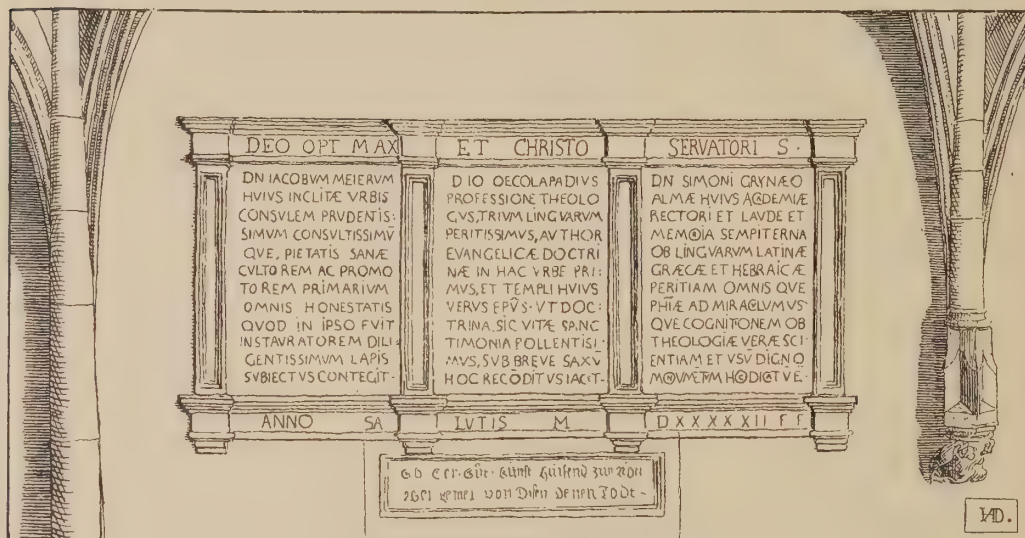 DEO OPT MAX ET CHRISTO SERVATORI S·
DN IACOBVM MEIERVM
HVIVS INCLITÆ VRBIS
CONSVLEM PRVDENTIS:
SIMVM CONSVLTISSIMV̄
QVE, PIETATIS SANÆ
CVLTOREM AC PROMO
TOREM PRIMARIVM
OMNIS HONESTATIS
QVOD IN IPSO FVIT
INSTAVRATOREM DILI
GENTISSIMVM LAPIS
SVBIECTVS CONTEGIT·
D IO OECOLAPADIVS
PROFESSIONE THEOLO
GVS, TRIVM LINGVARVM
PERITISSIMVS, AVTHOR
EVANGELICÆ DOCTRI
NÆ IN HAC VRBE PRI:
MVS, ET TEMPLI HVIVS
VERVS EPV̄S· VT DOC:
TRINA, SIC VITÆ SANC
TIMONIA POLLENTISI:
MVS, SVB BREVE SAXV̄
HOC RECŌDITVS IACET·
DN SIMONI GRYNÆO
ALMÆ HVIVS ACADEMIÆ
RECTORI ET LAVDE ET
MEMORIA SEMPITERNA
OB LINGVARVM LATINÆ
GRÆCÆ ET HEBRAICÆ
PERITIAM OMNIS QVE
PHIÆ AD MIRACLVMVS·
QVE COGNITIONEM OB
THEOLOGIÆ VERÆ SCI
ENTIAM ET VSV̄ DIGNO
HOC DICATVE·
ANNO SALVTIS M DXXXXXII FF
GO Eer· Gůt· Kunst hülfend zur Not
keiner von Disen Denen Todt-
HAD.